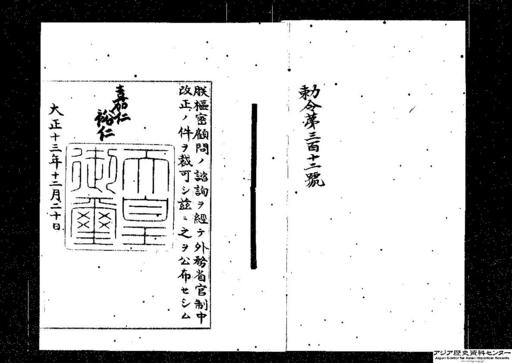 勅令第三百十二號
朕樞密顧問ノ諮詢ヲ經テ外務省官制中
改正ノ件ヲ裁可シ茲ニ之ヲ公布セシム
嘉仁
裕仁
天皇
御璽
大正十三年十二月二十日
アジア歴史資料センター
Japan Center for Asian Historical Records